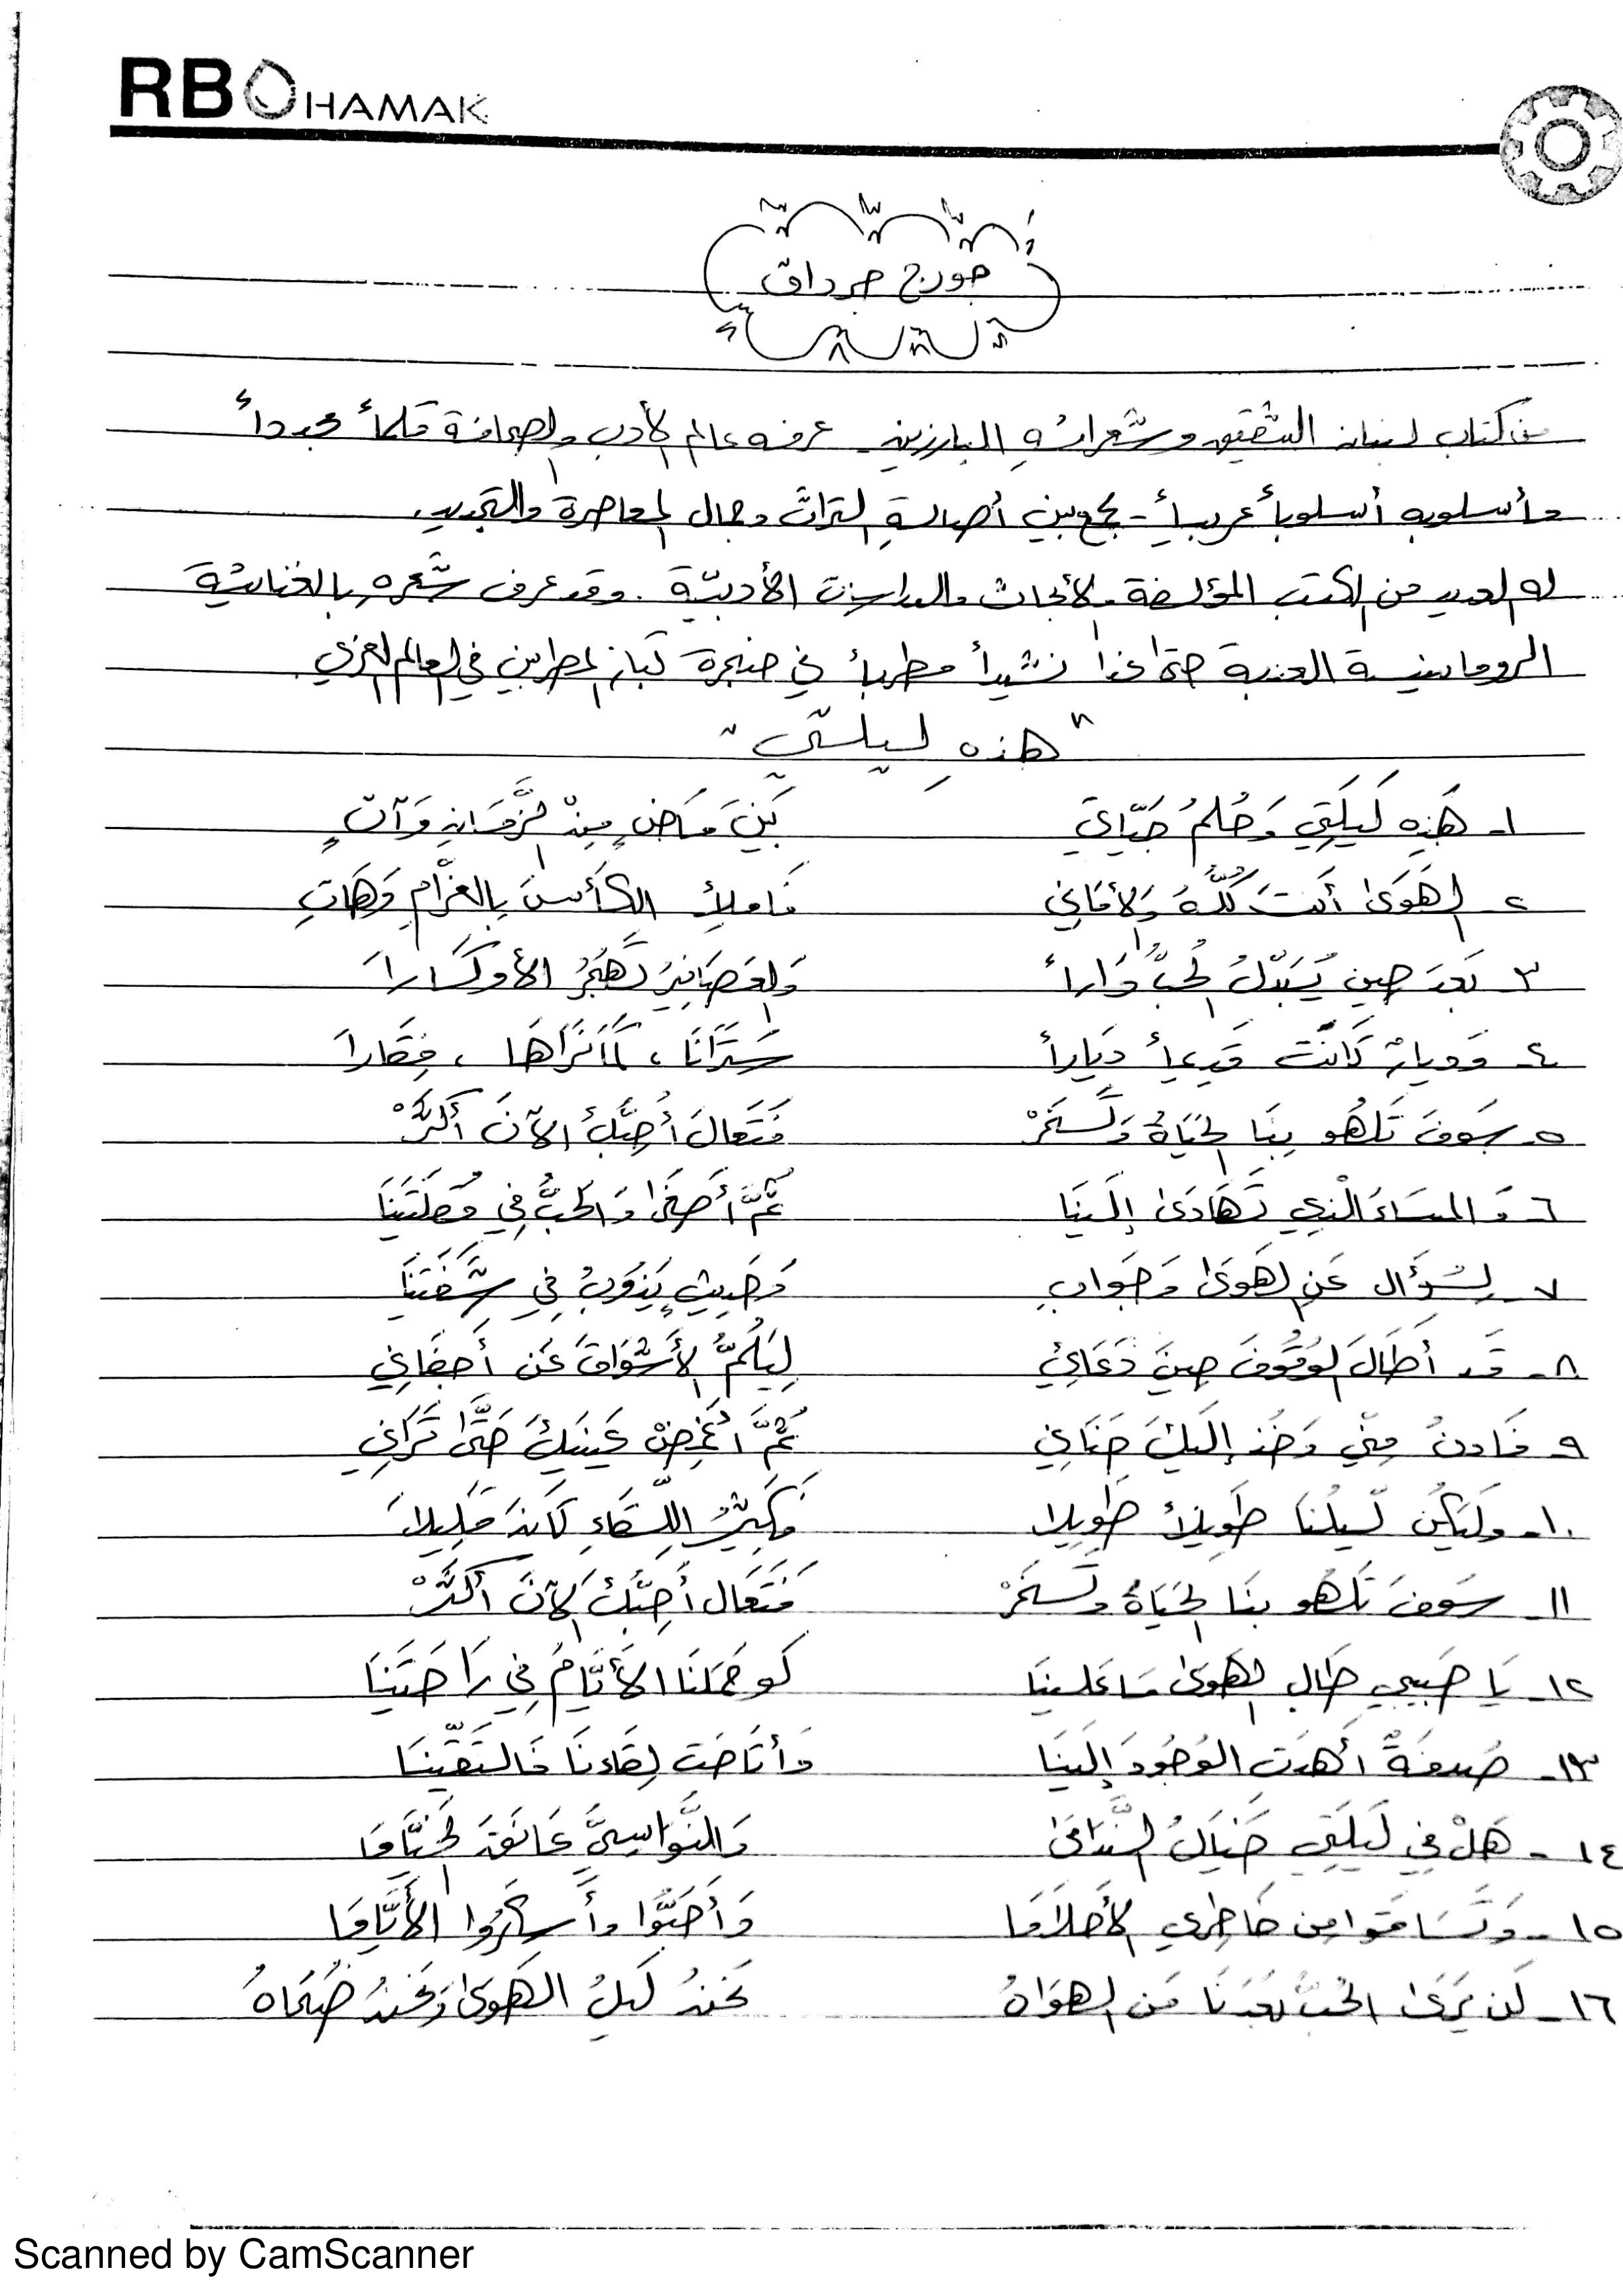 RB HAMAK
جورج جرداق
من كتاب لبنان الشقيق وشعرائهِ البارزين. عرفه عالم الأدب والصحافة قلماً مجدداً
وأسلوبه أسلوباً عربياً - يجمع بين أصالةِ التراث وجمال المعاصرة والتجديد.
له العديد من الكتب المؤلفة والأبحاث والدراسات الأدبيّة. وقد عرف شعره بالغنائية
الرومانسية العذبة حتى غدا نشيداً مطرباً في حنجرة كبار المطربين في العالم العربي.
"هذهِ ليلتي"
١- هَذِهِ لَيلَتِي وَحُلمُ حَيَاتِي بَينَ مَاضٍ مِنَ الزَّمَانِ وَآتٍ
٢- الهَوَى أَنتَ كُلُّهُ وَالأمَانِي فَاملأ الكَأسَ بِالغرَامِ وَهَاتِ
٣- بَعدَ حِينٍ يُبَدِّلُ الحُبُّ دَاراً وَالعَصَافِيرُ تَهجُرُ الأوكَارَا
٤- وَدِيارٌ كَانَت قَدِيماً دِيَاراً سَتَرَانَا، كَمَا نَرَاهَا، قِفَارا
٥- سَوفَ تَلهُو بِنَا الحَيَاةُ وَتَسخَرْ فَتَعَالَ أُحِبُّكَ الآنَ أَكثَرْ
٦- وَالمسَاءُ الَّذِي تَهَادَى إلَينَا ثُمَّ أَصغَى وَالحُبُّ فِي مُقلَتَينَا
٧- لِسُؤَالٍ عَنِ الهَوَى وَجَوَابٍ وَحَدِيثٍ يَذُوبُ فِي شَفَتَينَا
٨- قَد أطَالَ الوُقُوفَ حِينَ دَعَانِي لِيَلُمَّ الأَشوَاقَ عَن أَجفَانِي
٩- فَادنُ مِنِّي وَخُذ إلَيكَ حَنَانِي ثُمَّ أَغمِضْ عَينَيكَ حَتَّى تَرَانِي
١٠- وَليَكُن لَيلُنَا طَوِيلاً طَوِيلا فَكَثِيرُ اللِّقَاءِ كَانَ قَلِيلاَ
١١- سَوفَ تَلهُو بِنَا الحَيَاةُ وَتَسخَرْ فَتَعَال أُحِبُّكَ الآنَ أَكثَرْ
١٢- يَا حَبِيبِي طَاب الهَوَى مَا عَلَينَا لَو حَمَلنَا الأَيَّامُ فِي رَاحَتَينَا
١٣- صُدفَةٌ أَهدَت الوُجُودَ إلَينَا وَأتَاحَت لِقَاءنَا فَالتَقَينَا
١٤- هَلْ فِي لَيلَتِي خَيَالُ النَّدَامَى وَالنَّوَاسِيُّ عَانَقَ الخَيَّامَا
١٥- وَتَسَاقَوا مِن خَاطِرِي الأَحلاَمَا وَأَحَبُّوا وَأَسكَرُوا الأَيَّامَا
١٦- لَن يَرَى الحُبُّ بَعدَنَا مَن الهوَاهُ نَحنُ لَيلُ الهَوَى وَنَحنُ ضُحَاهُ
Scanned by CamScanner